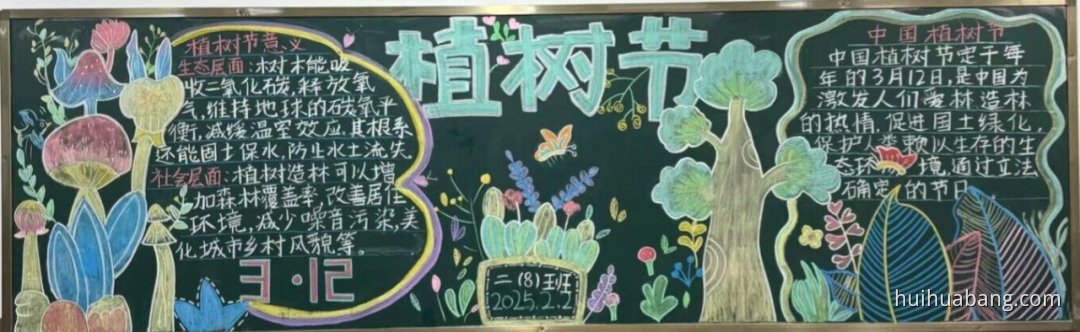 植树节
植树节意义
生态层面:树木能吸
收二氧化碳,释放氧
气,维持地球的碳氧平
衡,减缓温室效应,其根系
还能固土保水,防止水土流失
社会层面:植树造林可以增
加森林覆盖率,改善居住
环境,减少噪音污染,美
化城市乡村风貌等。
3·12
二(8)班
2025.2.2
中国植树节
中国植树节定于每
年的3月12日,是中国为
激发人们爱林造林
的热情,促进国土绿化,
保护人类赖以生存的生
态环境,通过立法
确定的节日
huihuabang.com